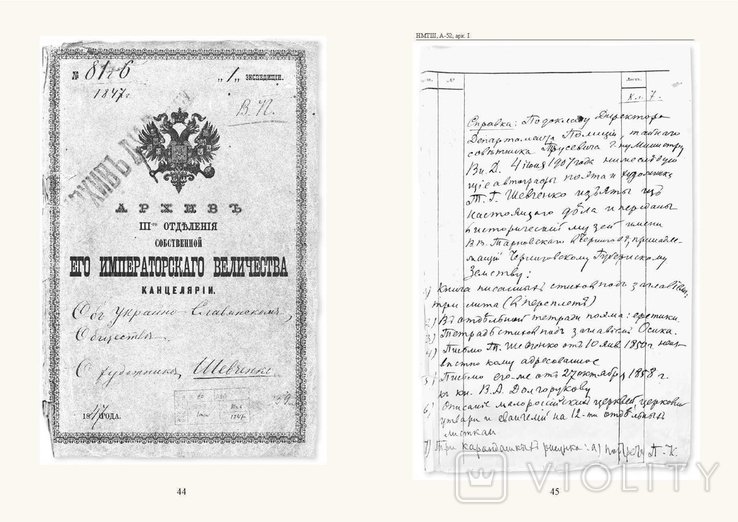 № 81 ч 6
„1„ ЭКСПЕДИЦІИ.
1847 г.
В. П.
АРХИВЪ
АРХИВЪ
IIIго ОТДѢЛЕНІЯ
СОБСТВЕННОЙ
ЕГО ИМПЕРАТОРСКАГО ВЕЛИЧЕСТВА
КАНЦЕЛЯРІИ.
Объ Украино-Славянскомъ
Обществѣ.
О художникѣ Шевченкѣ
1847 ГОДА.
44
НМТШ, А-52, арк. 1
К л. 7.
Справка: По докладу Директора
Департамента Полиціи, тайнаго
совѣтника Трусевича г. ну Министру
Вн. Д. 4 іюня 1907 года нижеслѣдую
щіе автографы поэта и художника
Т. Г. Шевченко изъяты изъ
настоящаго дѣла и переданы
въ историческій музей имени
В. В. Тарновскаго въ Черниговѣ, принадле-
жащій Черниговскому Губернскому
Земству:
1) Книга писанныхъ стиховъ подъ заглавіемъ
три лита (въ переплетѣ)
2) Въ отдѣльной тетради поэма: еретикъ.
3) Тетрадь стиховъ подъ заглавіемъ Осика.
4) Письмо Т. Шевченко отъ 10 янв. 1850 г. неиз-
вѣстно кому адресованное
5) Письмо его-же отъ 27 октября 1858 г.
къ кн. В. А. Долгорукову
6) Описаніе малороссійскихъ церквей, церковн
утвари и евангелій на 12-ти отдѣльныхъ
листкахъ
7) Три карандашныхъ рисунка: а) портретъ А. К.
45
VIOLITY